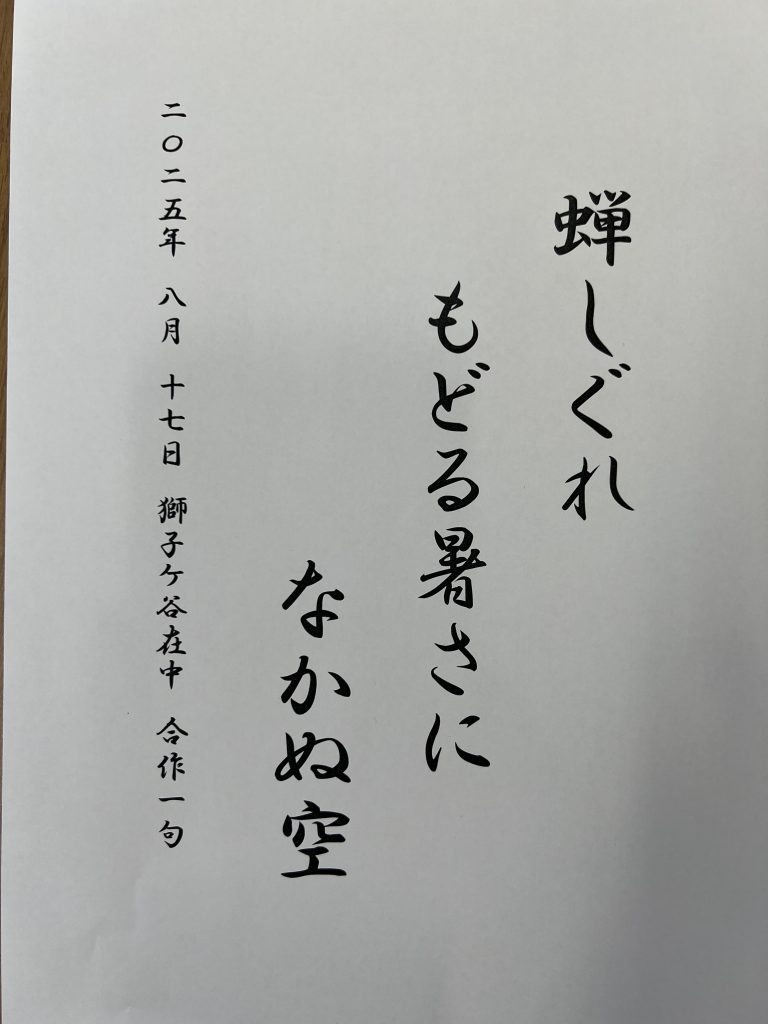 蝉しぐれ
もどる暑さに
なかぬ空
二〇二五年 八月 十七日 獅子ケ谷在中 合作一句